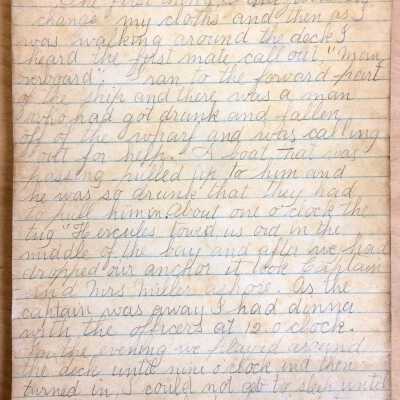 The first thing I did was to
change my cloths and then as I
was walking around the deck I
heard the first mate call out "Man
overboard". I ran to the forward part
of the ship and there was a man
who had got drunk and fallen
off of the wharf and was calling
out for help. A boat that was
passing pulled up to him and
he was so drunk that they had
to pull him in. About one o'clock the
tug "Hercules" towed us out in the
middle of the bay and after we had
dropped our anchor it took Captain
and Mrs. ashore. As the
captain was away I had dinner
with the officers at 12 o'clock.
In the evening we played around
the deck until nine o'clock and then
turned in. I could not get to sleep until